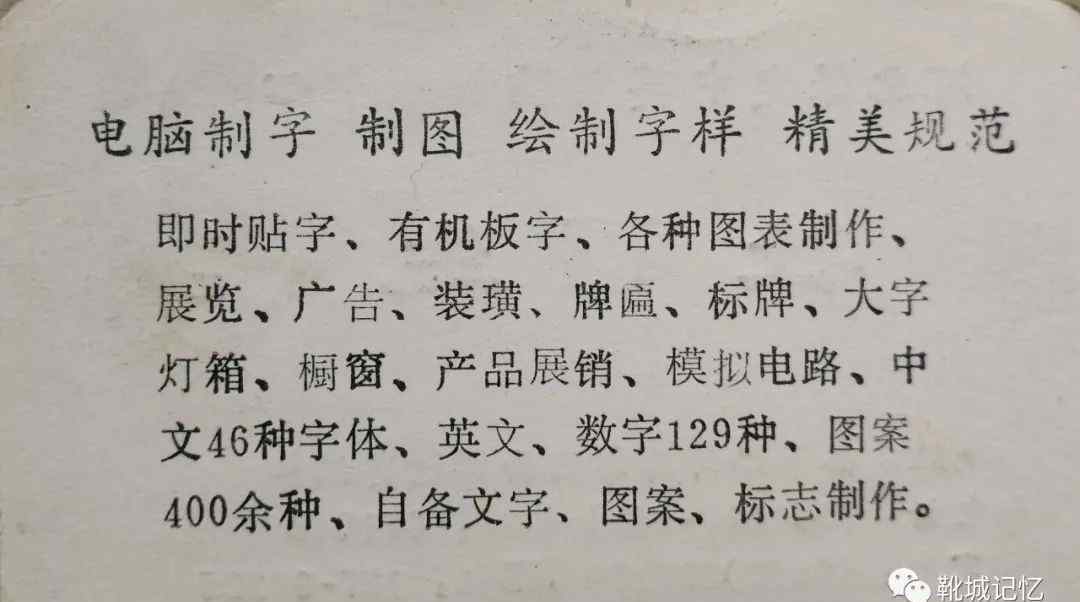 电脑制字 制图 绘制字样 精美规范
即时贴字、有机板字、各种图表制作、
展览、广告、装璜、牌匾、标牌、大字
灯箱、橱窗、产品展销、模拟电路、中
文46种字体、英文、数字129种、图案
400余种、自备文字、图案、标志制作。
靴城记忆